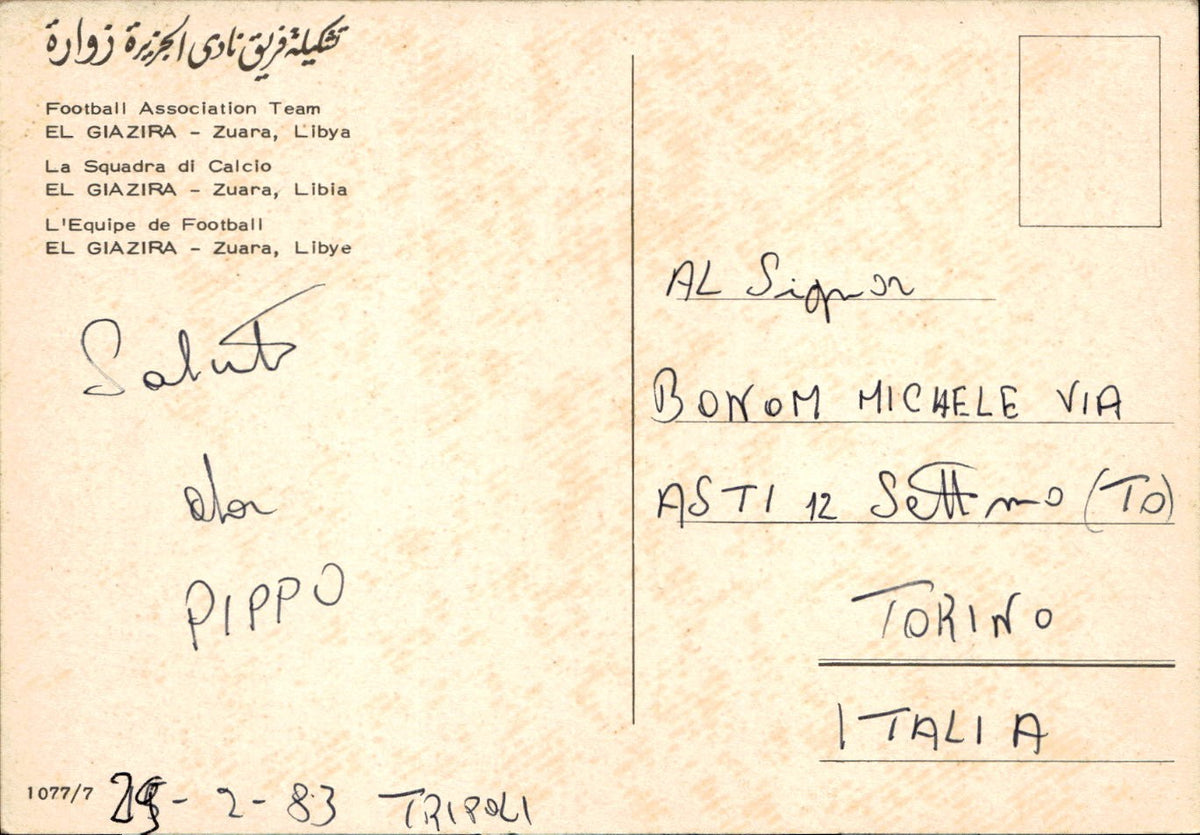 تشكيلة فريق نادى الجزيرة زوارة
Football Association Team
EL GIAZIRA - Zuara, Libya
La Squadra di Calcio
EL GIAZIRA - Zuara, Libia
L'Equipe de Football
EL GIAZIRA - Zuara, Libye
Saluti
PIPPO
AL Signor
BONOM MICHELE VIA
ASTI 12 Settimo (TO)
TORINO
ITALIA
1077/7
- 2 - 83 TRIPOLI